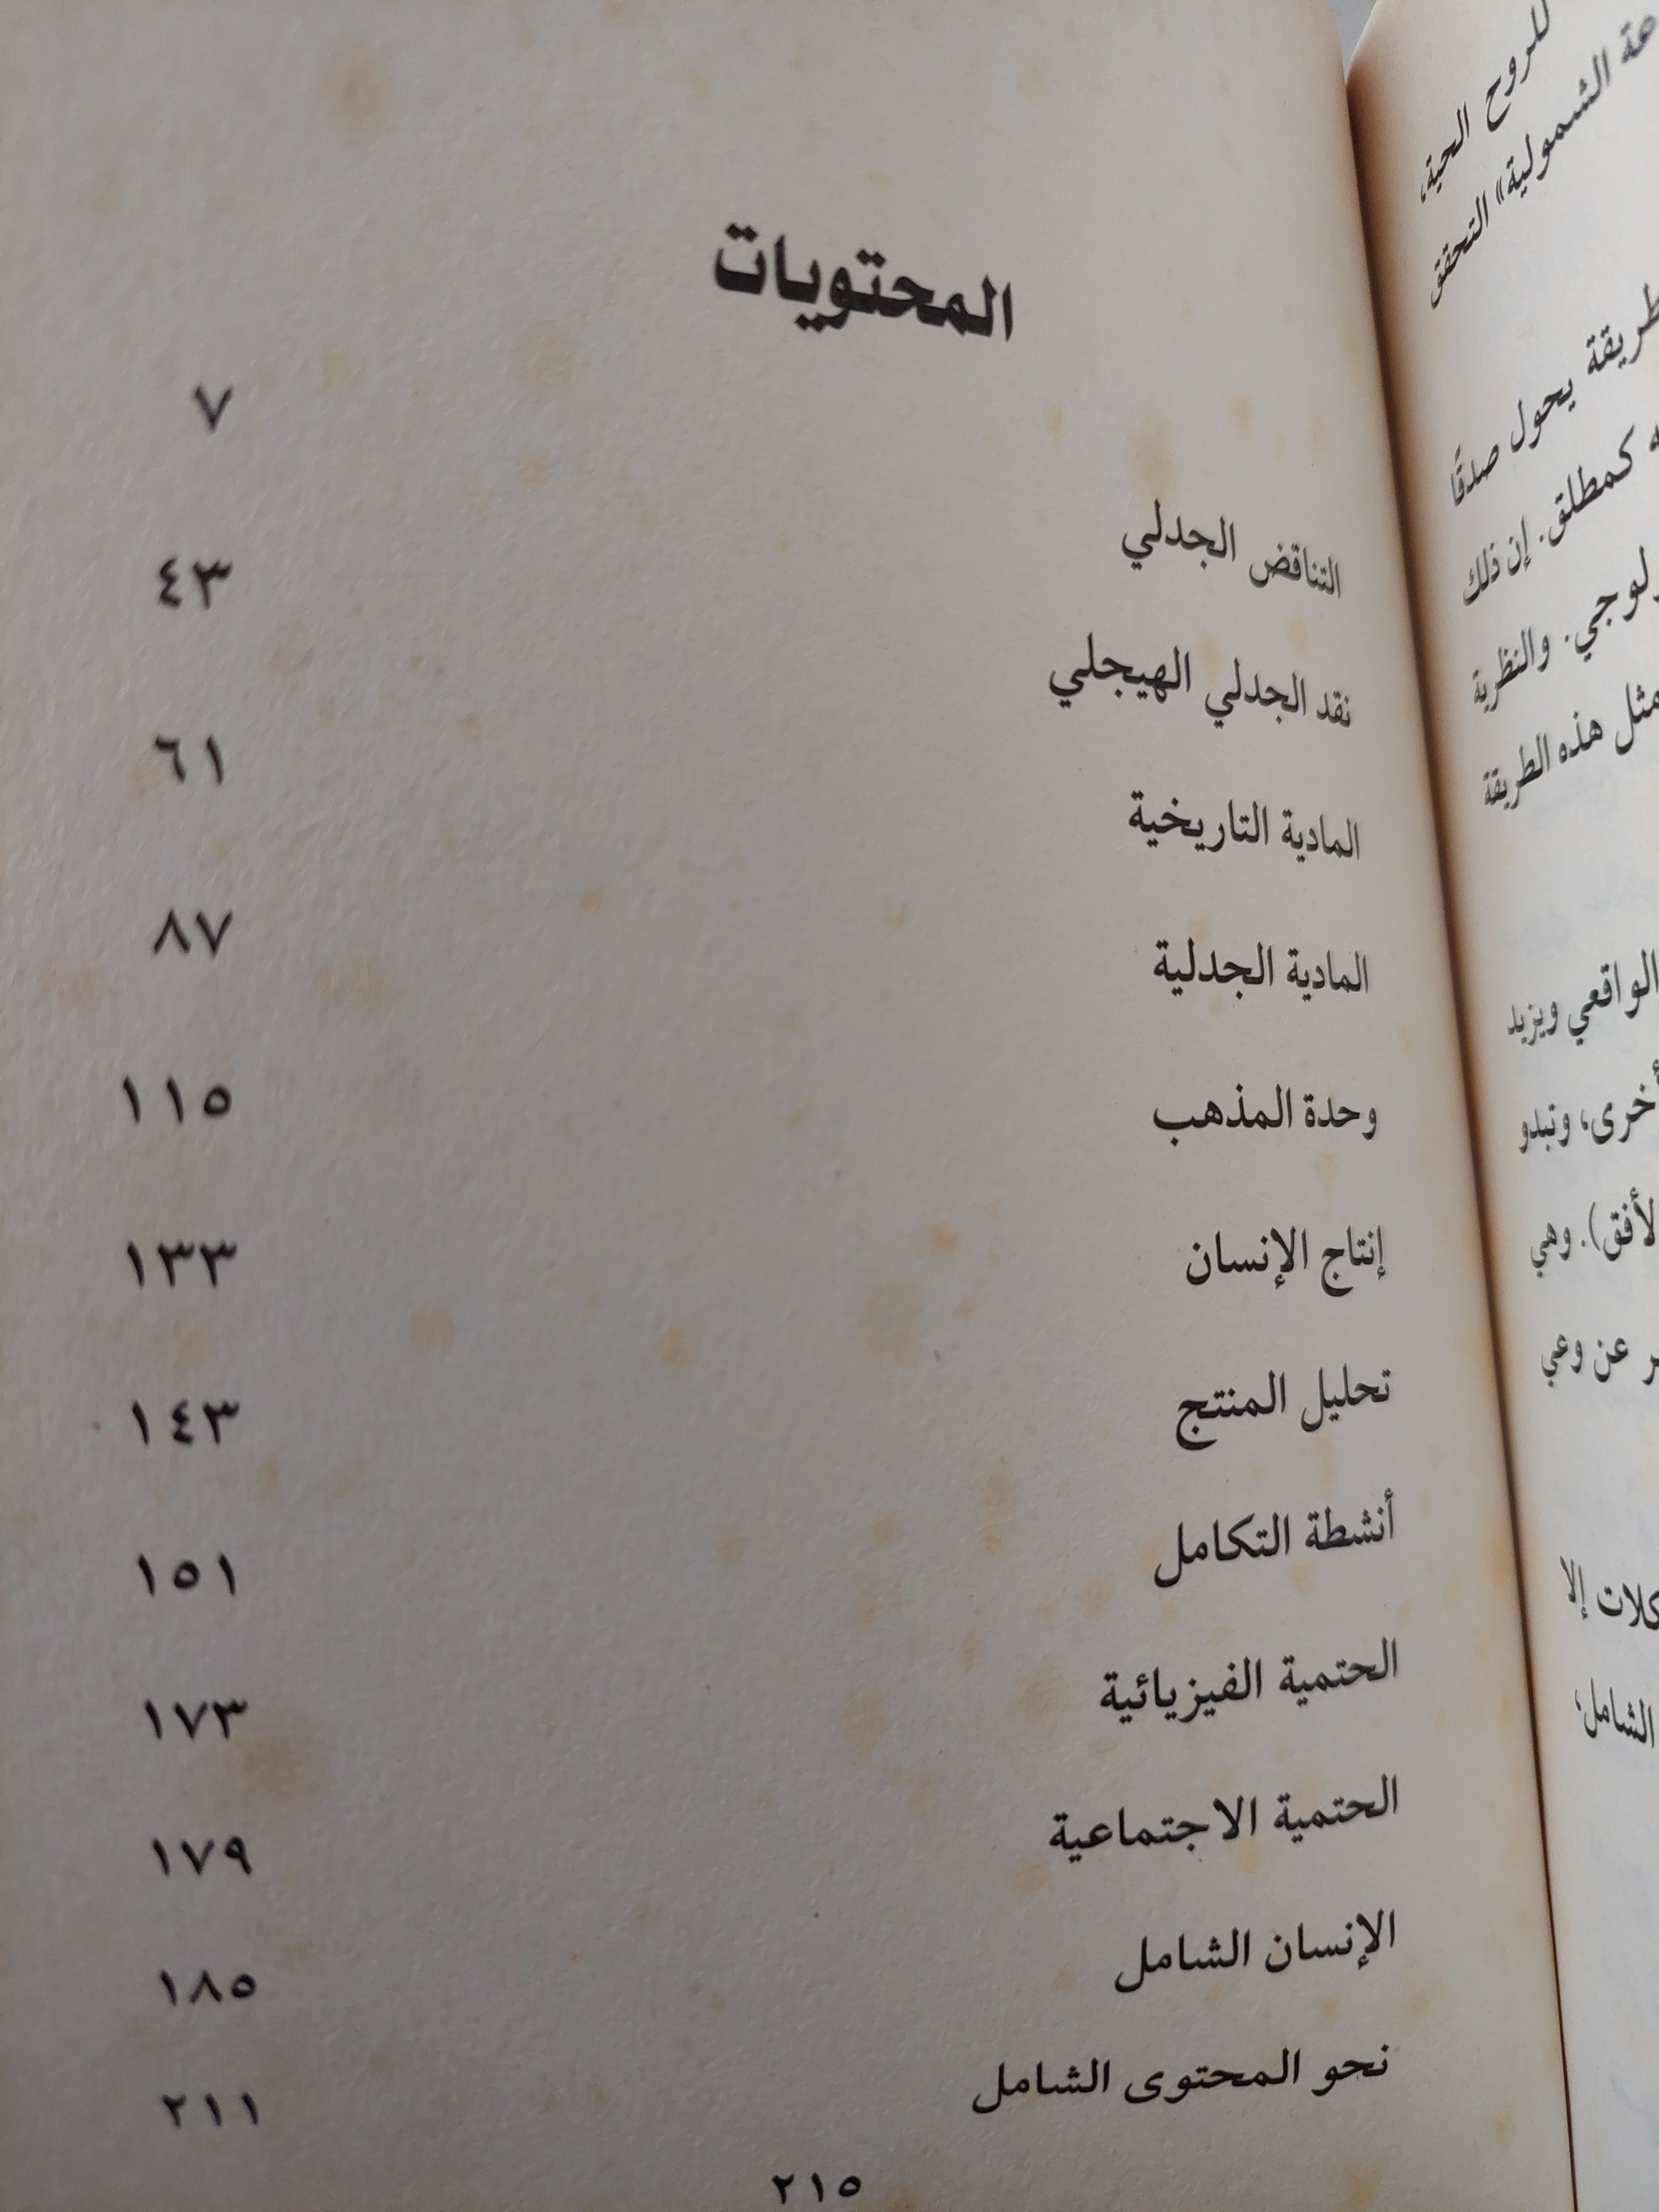 المحتويات
التناقض الجدلي ٧
نقد الجدلي الهيجلي ٤٣
المادية التاريخية ٦١
المادية الجدلية ٨٧
وحدة المذهب ١١٥
إنتاج الإنسان ١٣٣
تحليل المنتج ١٤٣
أنشطة التكامل ١٥١
الحتمية الفيزيائية ١٧٣
الحتمية الاجتماعية ١٧٩
الإنسان الشامل ١٨٥
نحو المحتوى الشامل ٢١١
٢١٥
للروح الحية،
الشمولية» التحقق
طريقة يحول صدقًا
كمطلق. إن ذلك
لوجي. والنظرية
مثل هذه الطريقة
الواقعي ويزيد
أخرى، وتبدو
الأفق). وهي
عن وعي
كلات إلا
الشامل؛